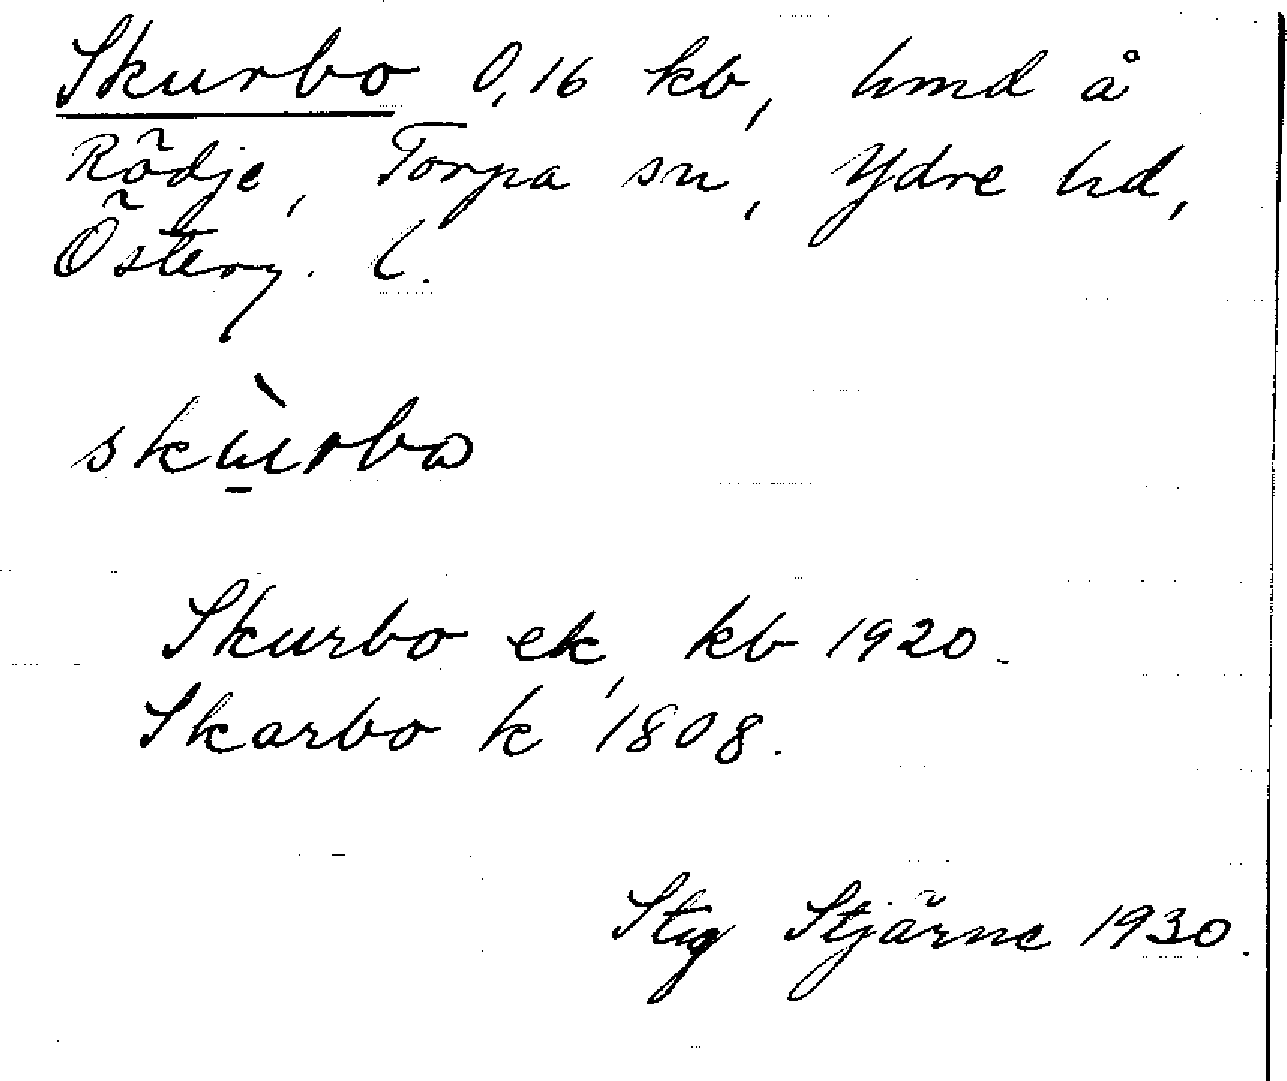 Skurbo 0,16 kb, hmd å
Rödje, Torpa sn, Ydre hd,
Österg. l.
skùrbo
Skurbo ek, kb 1920.
Skarbo k 1808.
Stig Stjärne 1930.